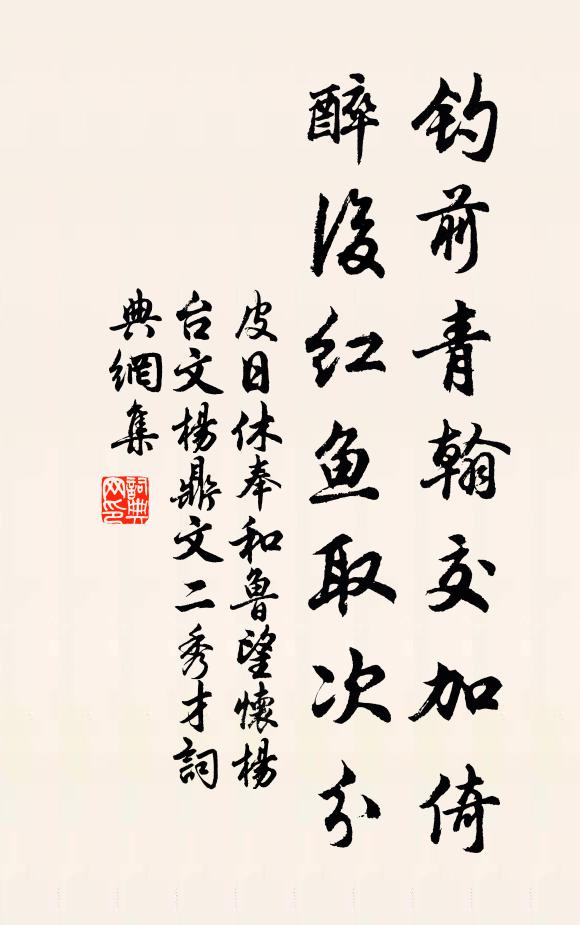 钓前青翰交加倚
醉後红鱼取次分
皮日休奉和鲁望懷楊
台文楊鼎文二秀才詞
典網集
詞典网印